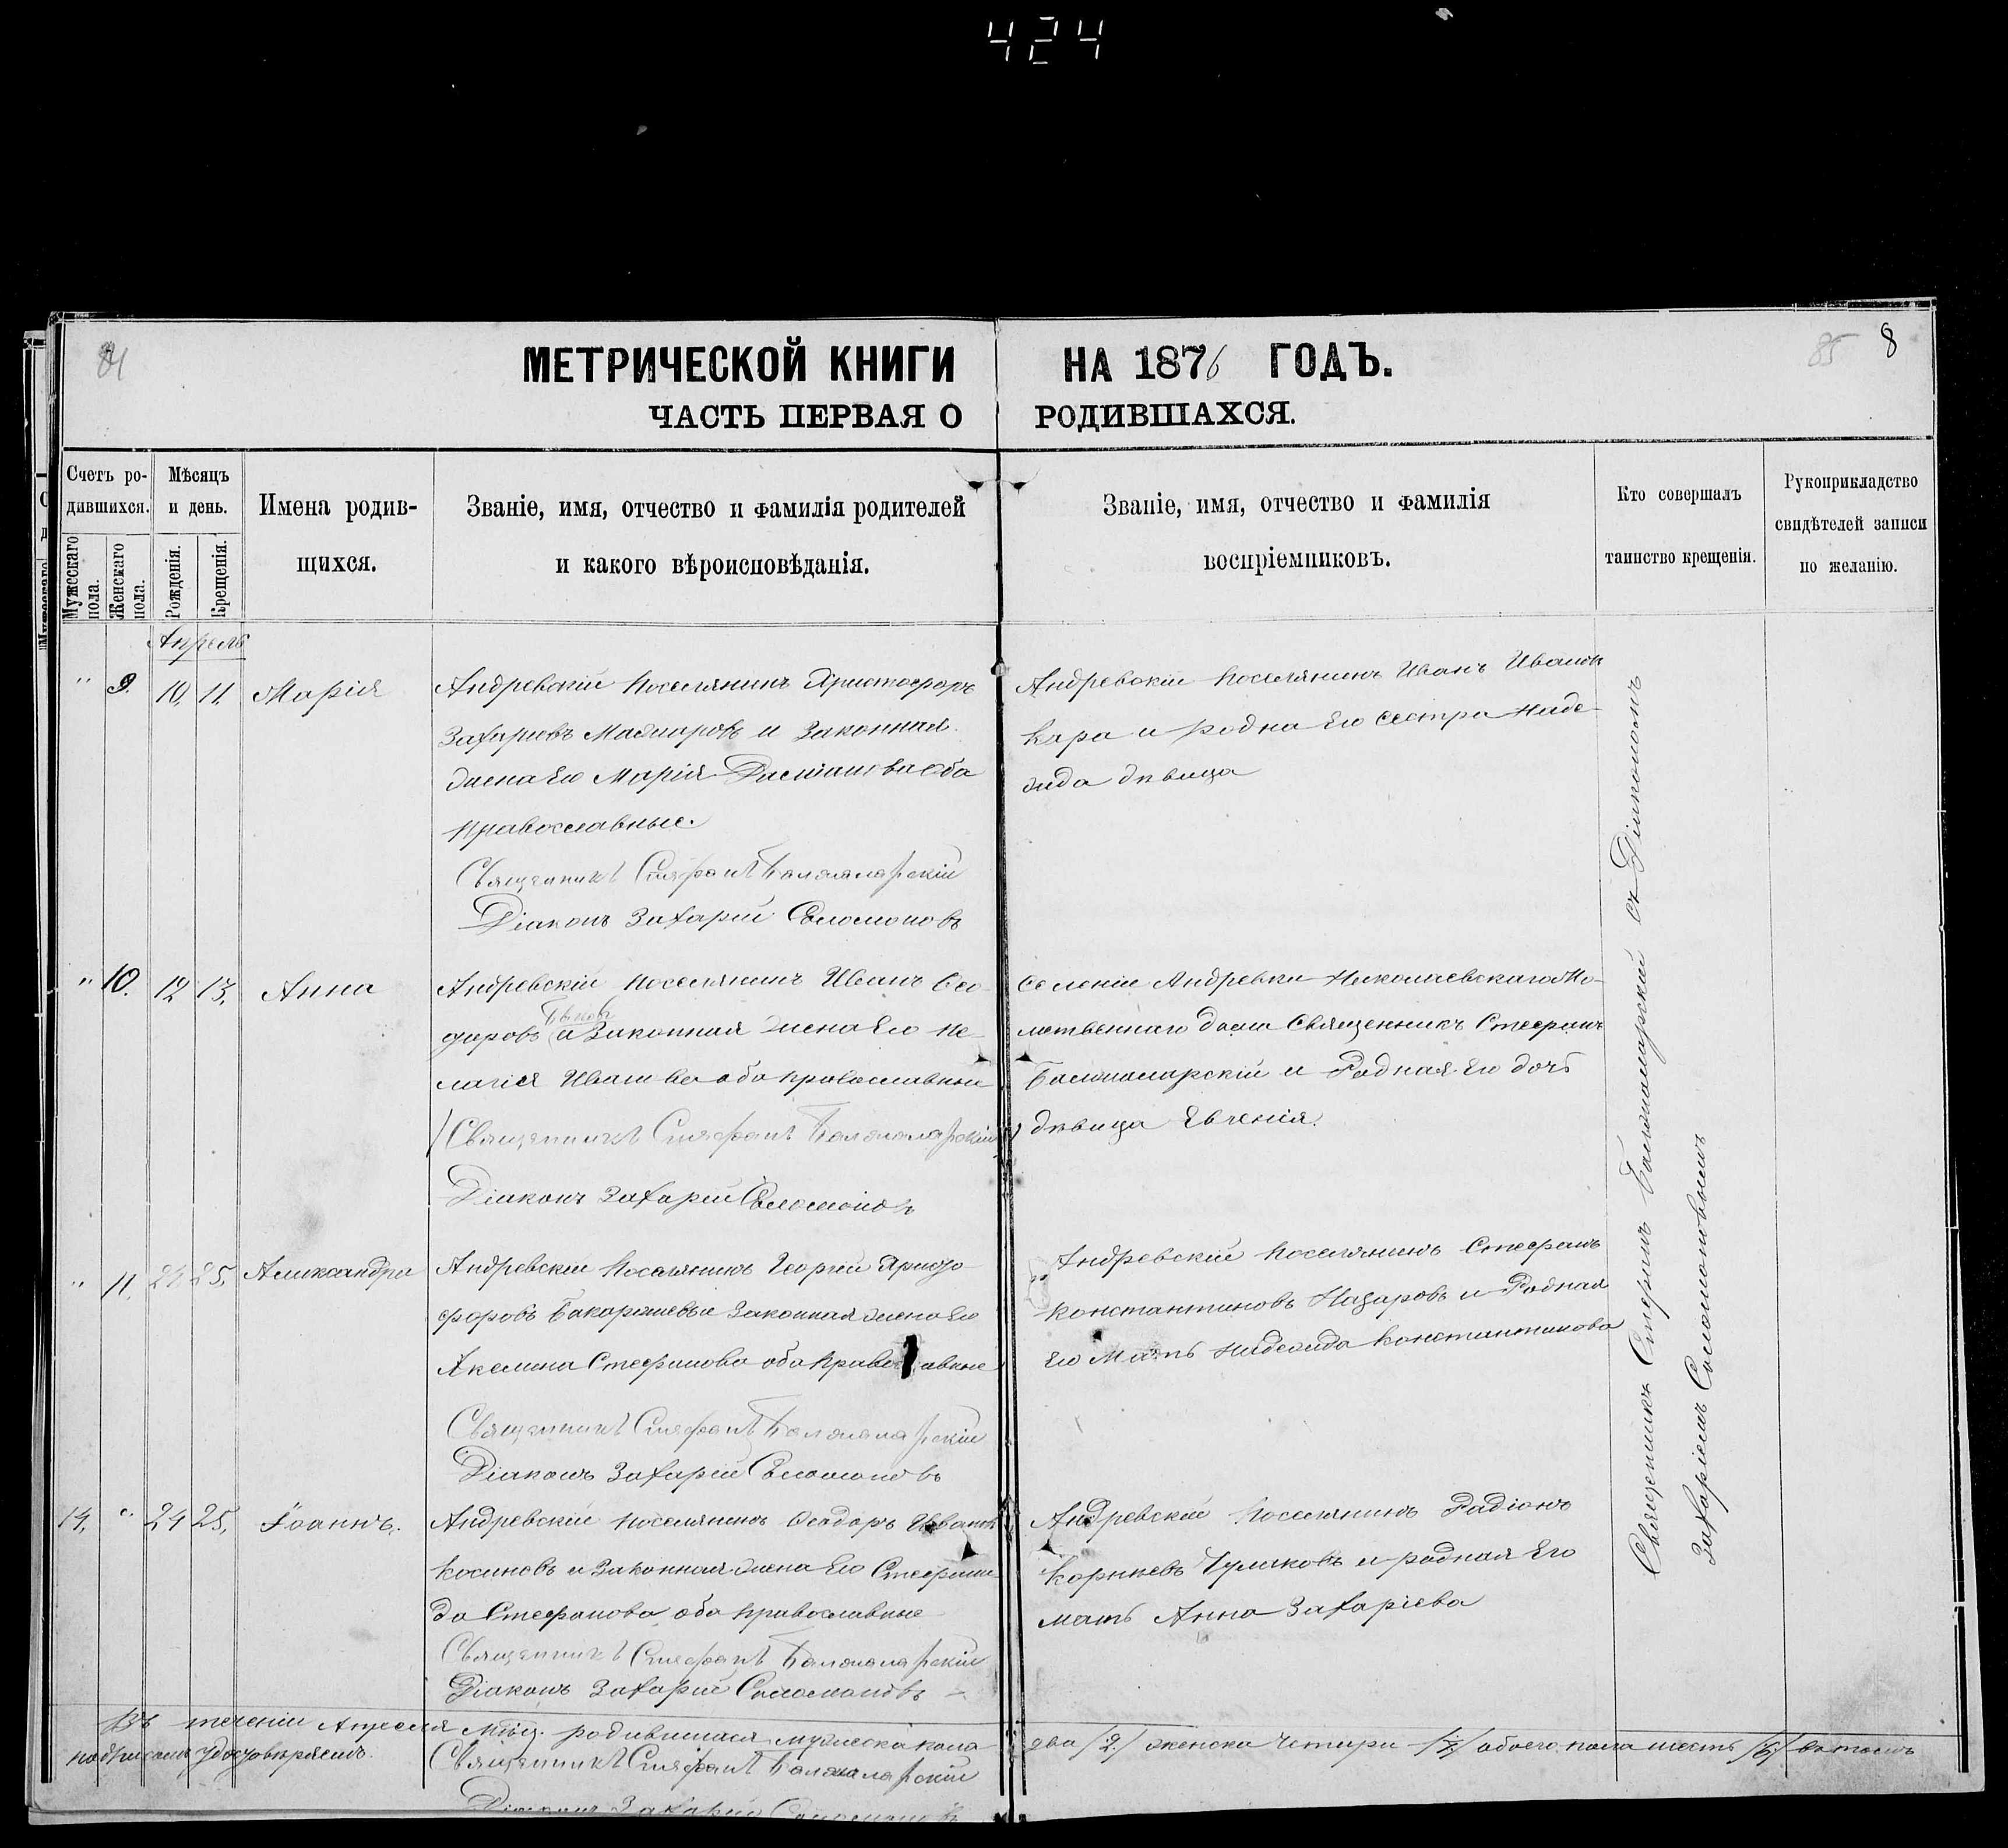 424
84
85 8
МЕТРИЧЕСКОЙ КНИГИ НА 1876 ГОДЪ.
ЧАСТЬ ПЕРВАЯ О РОДИВШАХСЯ.
Счетъ родившихся.
Мужескаго пола.
Женскаго пола.
Мѣсяцъ и день.
Рожденія.
Крещенія.
Имена родив-
щихся.
Званіе, имя, отчество и фамилія родителей
и какого вѣроисповѣданія.
Званіе, имя, отчество и фамилія
воспріемниковъ.
Кто совершалъ
таинство крещенія.
Рукоприкладство
свидѣтелей записи
по желанію.
Апрель
" 9. 10, 11, Марія
Андревскій Поселянинъ Христофоръ
Захариевъ и Законная
жена Его Марія оба
православные.
Священникъ Стефанъ Баломарскій
Діаконъ Захарій Соломоновъ
Андревскій Поселянинъ Иванъ Иванов
Кара и родна Его сестра Наде-
жда дѣвица
" 10. 12 13, Анна
Андревскій Поселянинъ Иванъ Ѳео-
доровъ и Законная жена Его Пе-
лагія Иванова оба православные
Священникъ Стефанъ Баломарскій
Діаконъ Захарій Соломоновъ
Селеніе Андревки Николаевскаго Мо-
литвеннаго дома Священникъ Стефанъ
Баломарскій и Родная Его дочь
дѣвица Евгенія.
" 11. 24 25 Александра
Андревскій Поселянинъ Георгій Христо
форовъ и Законная жена Его
Акелина Стефанова оба православные
Священникъ Стефанъ Баломарскій
Діаконъ Захарій Соломоновъ
Андревскій Поселянинъ Стефанъ
Константиновъ Назаровъ и Родная
Его Мать Надежда Константинова
14, " 24 25, Іоаннъ.
Андревскій Поселянинъ Ѳеодоръ Иванов
Косиновъ и Законная жена Его Стефани
да Стефанова оба православные
Священникъ Стефанъ Баломарскій
Діаконъ Захарій Соломоновъ
Андревскій Поселянинъ Радіонъ
Корнѣевъ Чумаковъ и родная Его
мать Анна Захаріева
Священникъ Стефанъ Баломарскій съ Діакономъ
Захаріемъ Соломоновымъ
Въ теченіи Апреля Мѣся. родившися мужеска пола два /2/ женска четыри /4/ обоего пола шесть /6/ въ томъ
подписомъ удостовѣряемъ.
Священникъ Стефанъ Баломарскій
Діаконъ Захарій Соломоновъ